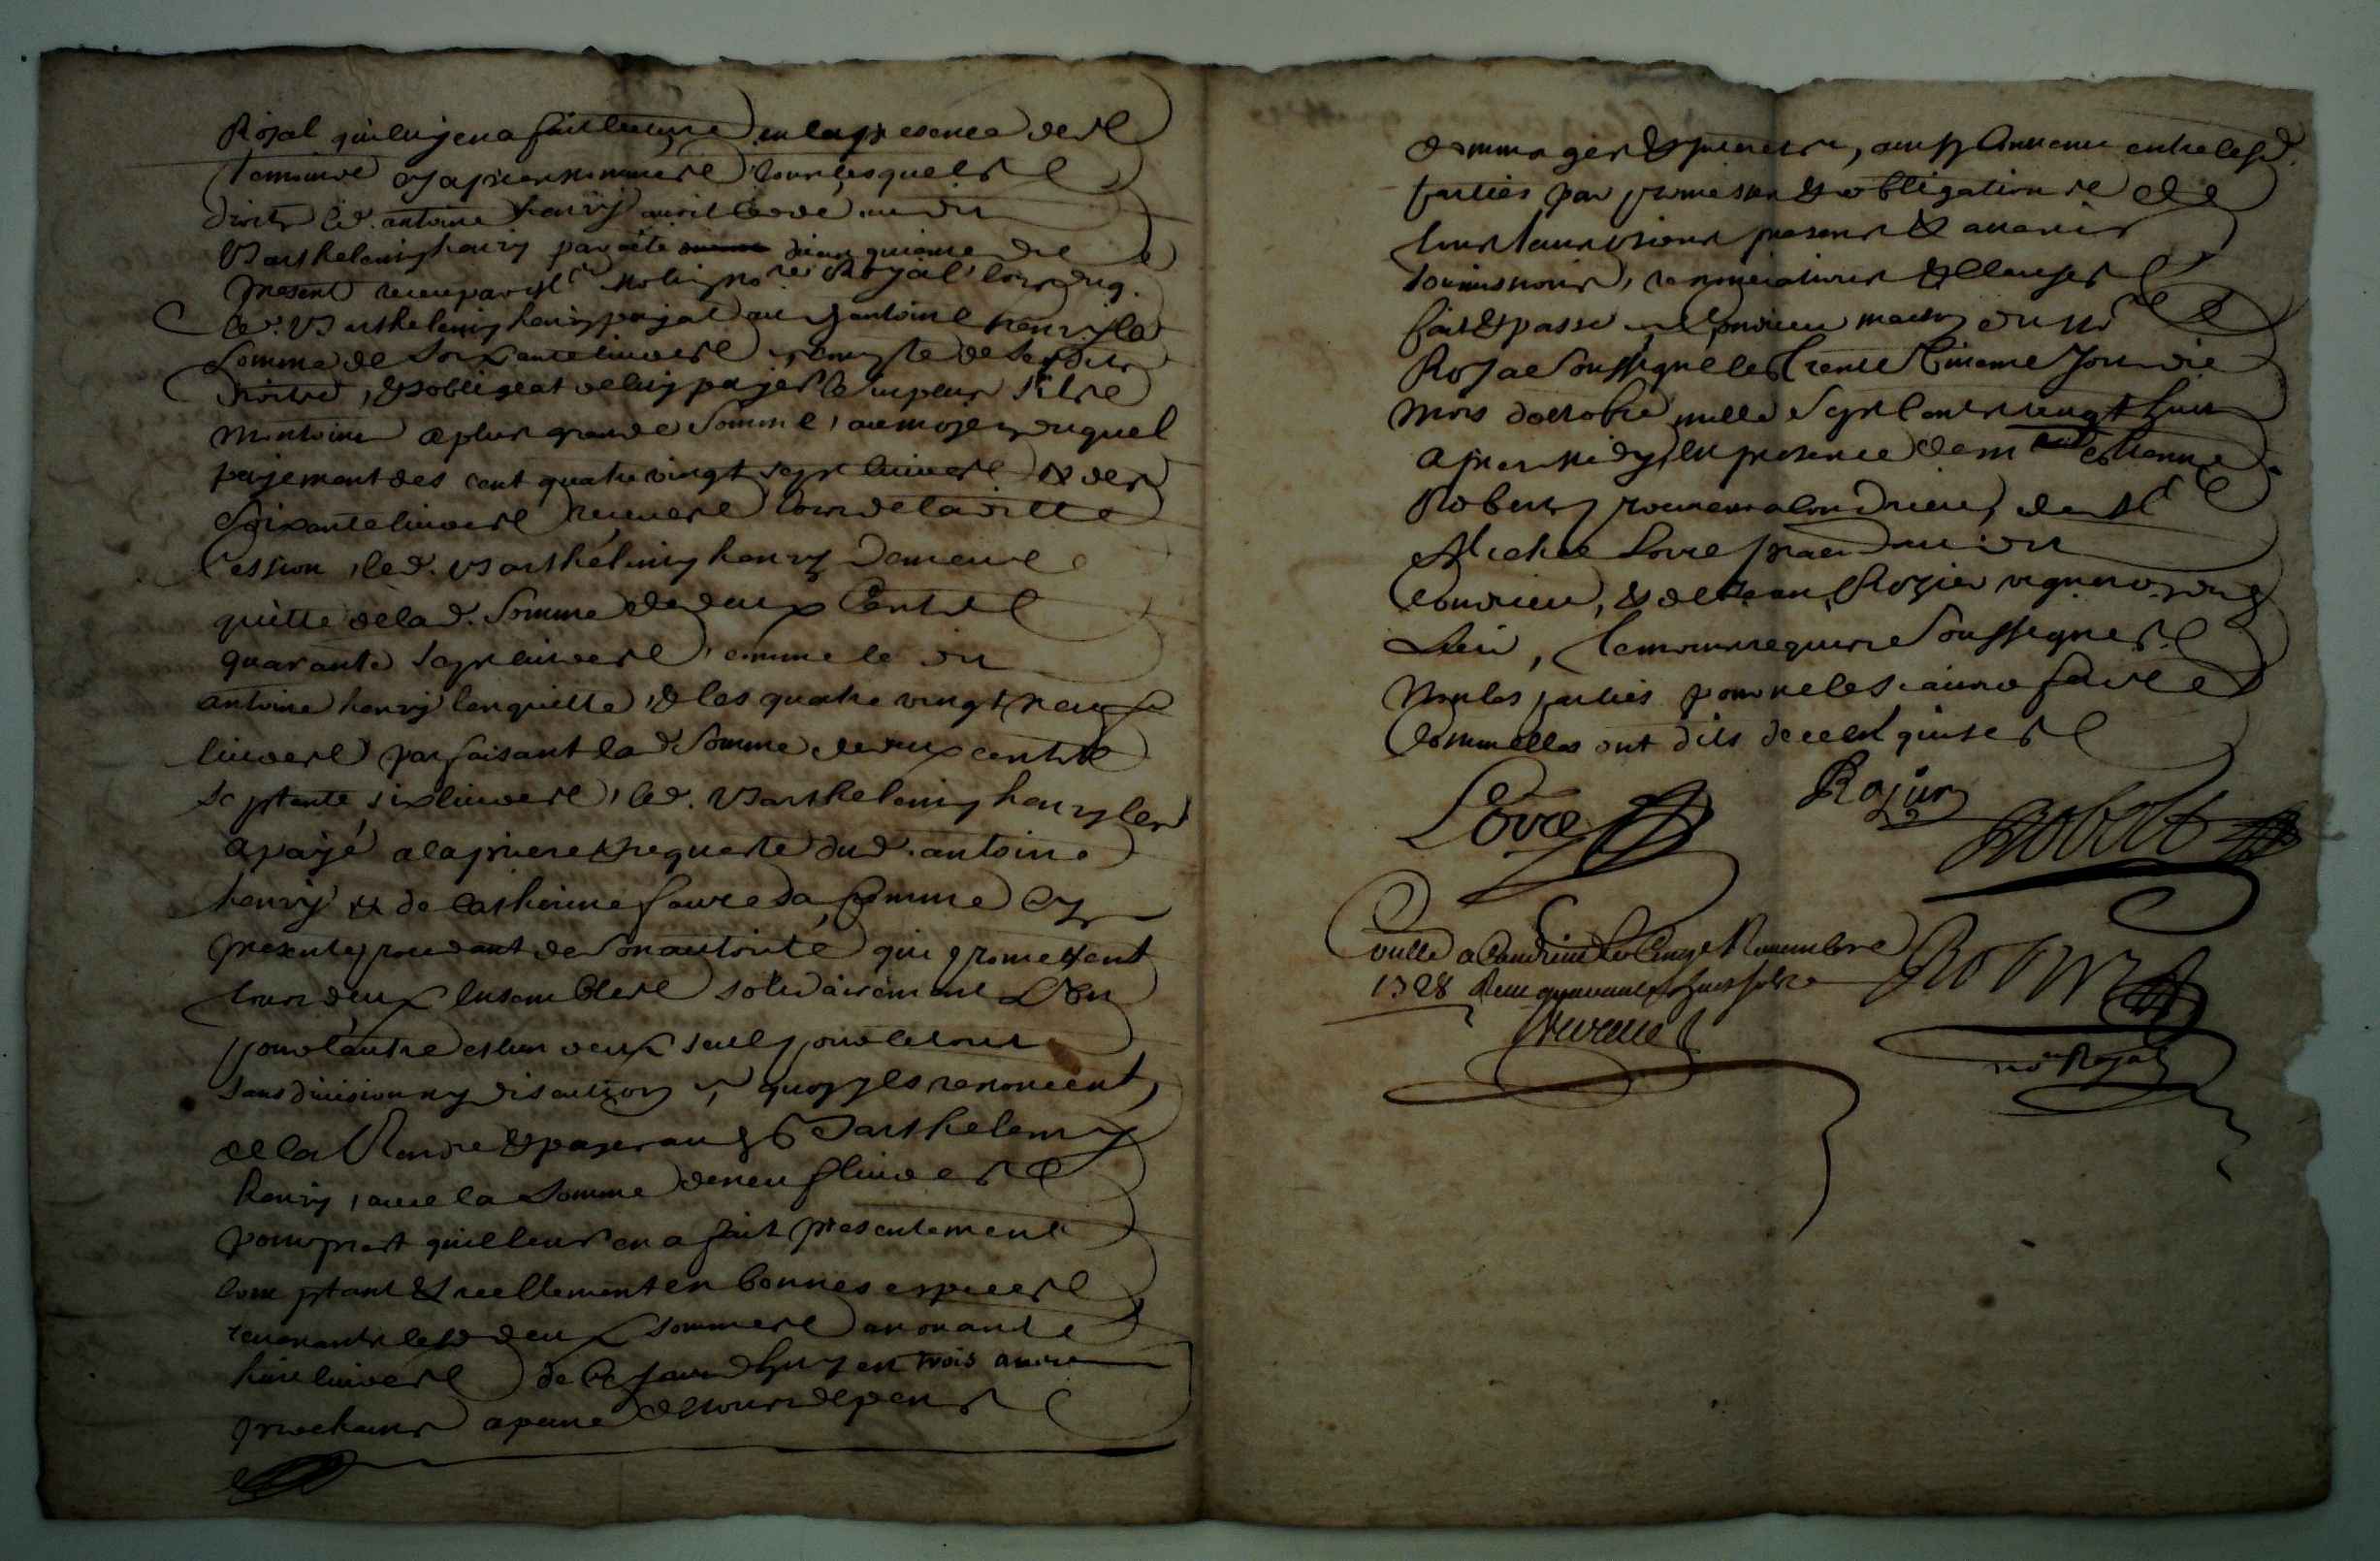 Royal quil luy en a fait lecture en la presence des
temoins cy apres nommés tous lesquels
droits led. antoine henry auroit cedé au dit
Barthelemy henry par acte du quinze du
present receu par led. no.re Royal, lors duq.
led. Barthelemy henry paya aud antoine henry la
somme de soixante livres a compte de sesdits
droits, & s'obligeat de luy payer le surplus s'ils se
montoint a plus grande somme, au moyen duquel
payement des cent quatre vingt sept livres & des
soixante livres receues lors de laditte
Cession, led. Barthelemy henry demeure
quitte de lad. somme de deux cents
quarante sept livres comme le dit
antoine henry l'en quitte, & les quatre vingt neuf
livres parfaisant lad somme de deux cents
septante six livres, led. Barthelemy henry les
a payé a la priere & requeste dud. antoine
henry & de Catherine faure sa femme cy
presente procedant de son autorité qui promettent
tous deux ensembles solidairement l'un
pour l'autre & l'un deux seul pour le tout
sans division ny discution a quoy ils renoncent
de la Rendre & payer aud Barthelemy
henry, avec la somme de neuf livres
pour prest quil leur en a fait presentement
comptant & reellement en bonnes especes
revenants lesd deux sommes a nonante
huit livres de ce jourdhuy en trois années
prochaines a peine de tous depens
dommages & interets, ainsy convenu entre lesd.
parties par promesse & obligation de
tous leurs biens presents & avenir
soumissions, renonciations & clauses
fait & passé a Condrieu maison du no.re
Royal soussigné le trente unieme Jour du
mois d'octobre mille sept cents vingt huit
apres midy en presence de m.re etienne
Robert, de s.r
Michel Love praticien au dit
Condrieu, & de Jean Rozier vigneron dud
Lieu, temoins requis & soussignés
non les parties pour ne le scavoir faire
comme elles ont dits de ce enquises
Love Rojier Robert
Controllé a Condrieu le onze Novembre
1728 Receu quarante huit sols
Robert
no.re Royal